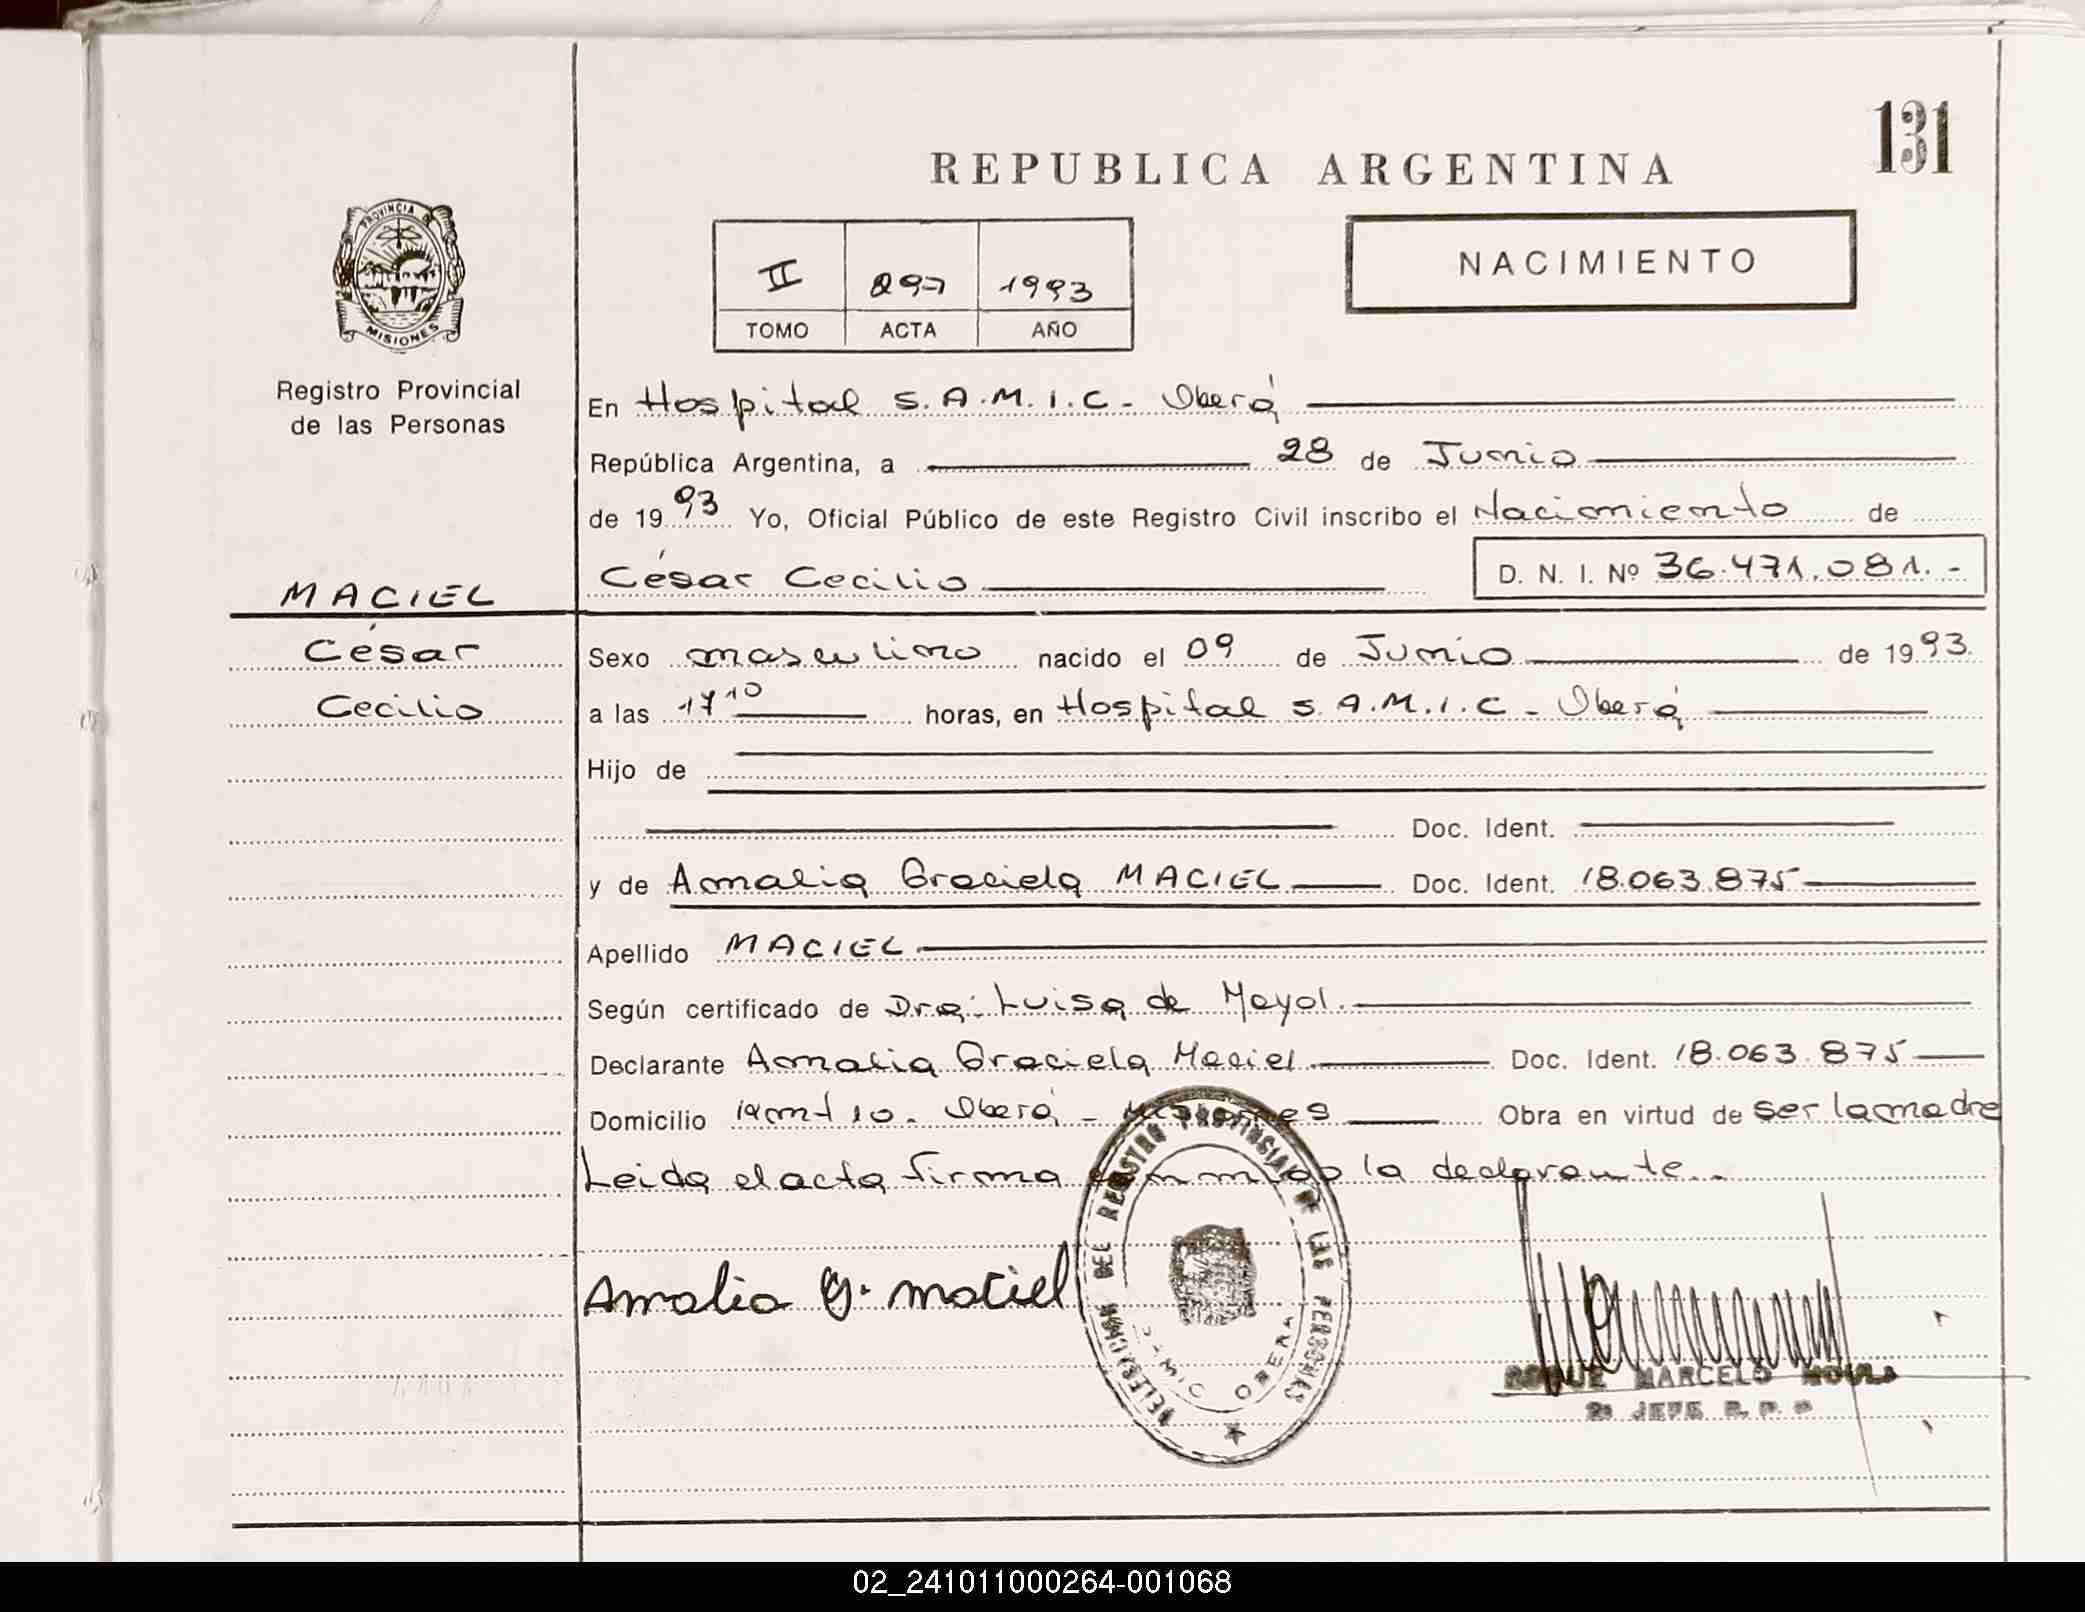 131
REPUBLICA ARGENTINA
PROVINCIA DE
MISIONES
Registro Provincial
de las Personas
II 897 1993
TOMO ACTA AÑO
NACIMIENTO
En Hospital S.A.M.I.C - Oberá
República Argentina, a 28 de Junio
de 1993 Yo, Oficial Público de este Registro Civil inscribo el Nacimiento de
César Cecilio D. N. I. Nº 36.471.081.-
MACIEL
César
Cecilio
Sexo masculino nacido el 09 de Junio de 1993
a las 17 10 horas, en Hospital S.A.M.I.C - Oberá
Hijo de
Doc. Ident.
y de Amalia Graciela MACIEL Doc. Ident. 18.063.875
Apellido MACIEL
Según certificado de Dra: Luisa de Mayol.
Declarante Amalia Graciela Maciel Doc. Ident. 18.063.875
Domicilio Oberá - Misiones Obra en virtud de ser la madre
Leida el acta firma conmigo la declarante..
Amalia G. Maciel
DELEGACION DEL REGISTRO PROVINCIAL DE LAS PERSONAS
OBERA
MARCELO
2º JEFE R. P. P
02_241011000264-001068